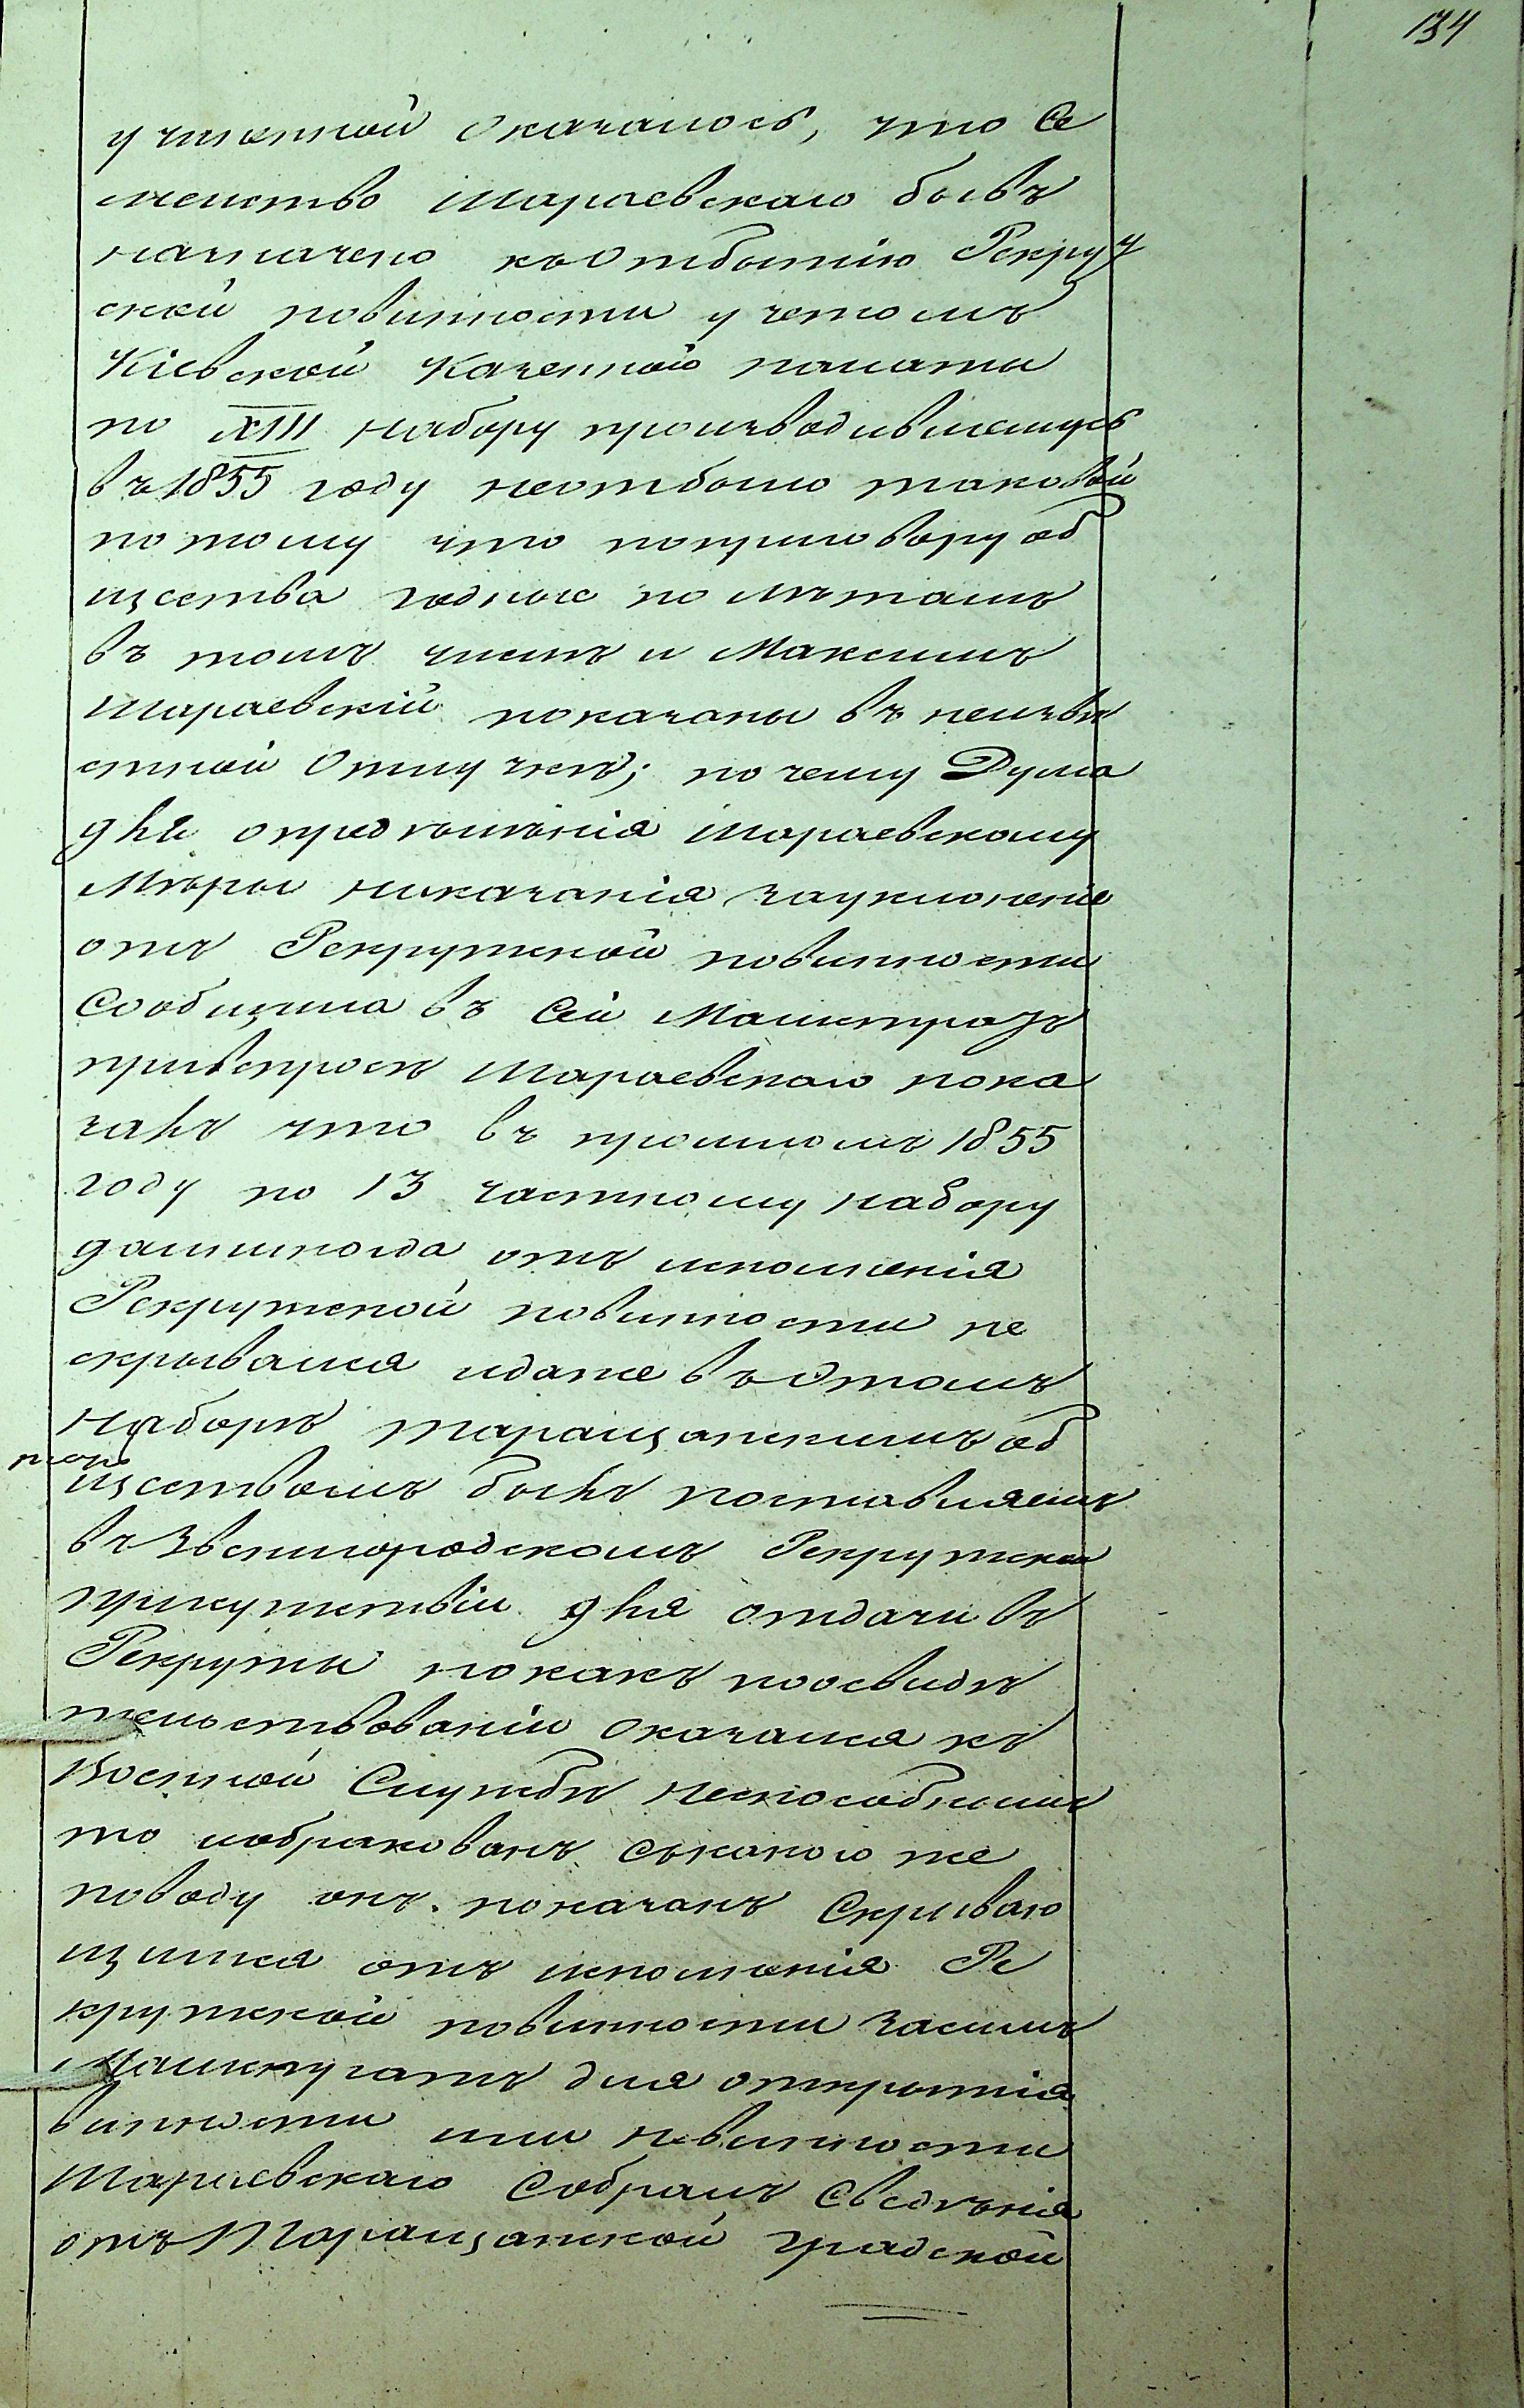 134
учиненной Оказалось, что Се
мейство Шараевскаго бывъ
назначено къ Отбытию Рекру
ской повинности учетомъ
Кіевской Казенной палаты
по XIII набору производившемусь
въ 1855 году неотбыло таковой
потому что поприговору об
щества годные по лѣтамъ
въ томъ числѣ и Максимъ
Шараевскій показаны въ неизвѣ
стной Отлучкѣ; почему Дума
для опредѣлѣнія Шараевскому
Мѣры наказанія зауклоненіе
отъ Рекрутской повинности
Сообщила въ Сей Магистратъ
привспросѣ Шараевскаго пока
залъ что въ прошломъ 1855
году по 13 частному набору
далшногда отъ исполненія
Рекрутской повинности не
скрывался идаже въ Этомъ
наборѣ Таращанскимъ об
ществомъ былъ поставляемъ
въ Звенигородскомъ Рекрутском
присутствіи для отдачи въ
Рекруты нокакъ поосвидѣ
тельствованіи Оказался къ
Военной Службѣ неспособнымъ
то избракованъ съкакого же
поводу онъ показанъ Скрываю
щимся отъ исполненія Ре
крутской повинности засимъ
Магистратъ для открытія
винности или невинности
Шараевскаго Собралъ Сведѣнія
отъ Таращанской градской